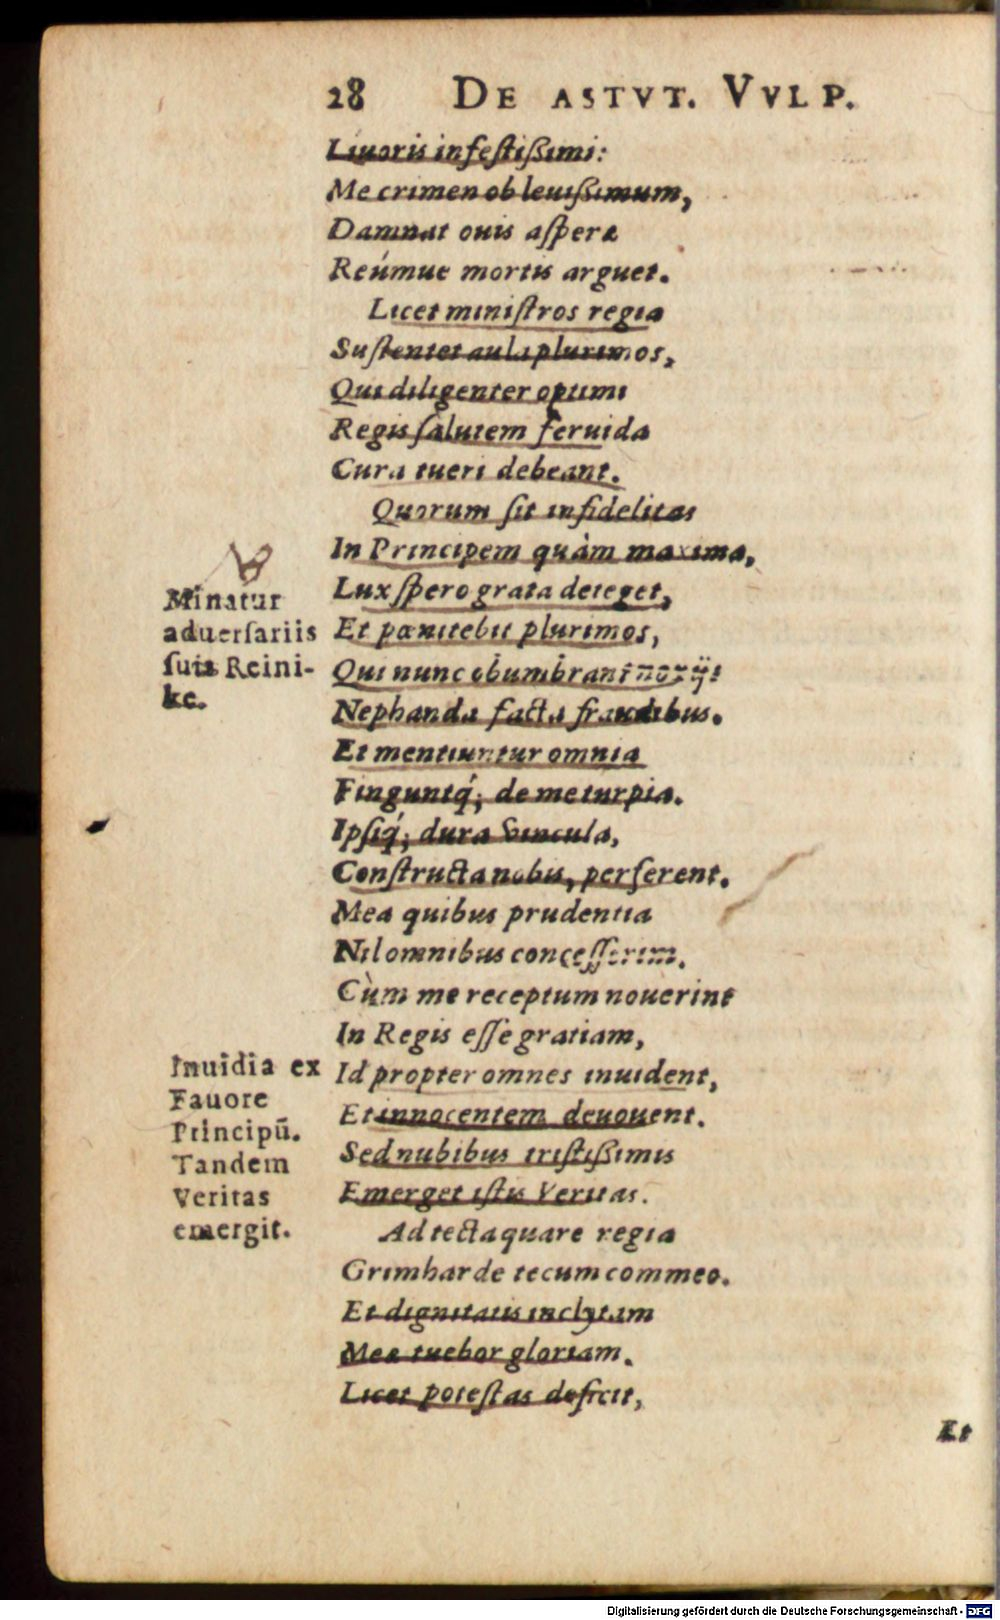 28 DE ASTVT. VVLP.
Liuoris infestißimi:
Me crimen ob leuißimum,
Damnat ouis asperæ
Reúmue mortis arguet.
Licet ministros regia
Sustentet aula plurimos,
Qui diligenter optimi
Regis salutem feruida
Cura tueri debeant.
Quorum sit infidelitas
In Principem quàm maxima,
Lux spero grata deteget,
Et pœnitebit plurimos,
Qui nunc obumbrant noxijs
Nephanda facta fraudibus.
Et mentiuntur omnia
Finguntq́; de me turpia.
Ipsiq́; dura vincula,
Constructa nobis, perferent.
Mea quibus prudentia
Nil omnibus concesserim.
Cùm me receptum nouerint
In Regis esse gratiam,
Id propter omnes inuident,
Et innocentem deuouent.
Sed nubibus tristißimis
Emerget istis Veritas.
Ad tecta quare regia
Grimharde tecum commeo.
Et dignitatis inclytam
Meæ tuebor gloriam.
Licet potestas deficit,
Et
Minatur
aduersariis
suis Reini-
ke.
Inuidia ex
Fauore
Principū.
Tandem
Veritas
emergit.
Digitalisierung gefördert durch die Deutsche Forschungsgemeinschaft - DFG